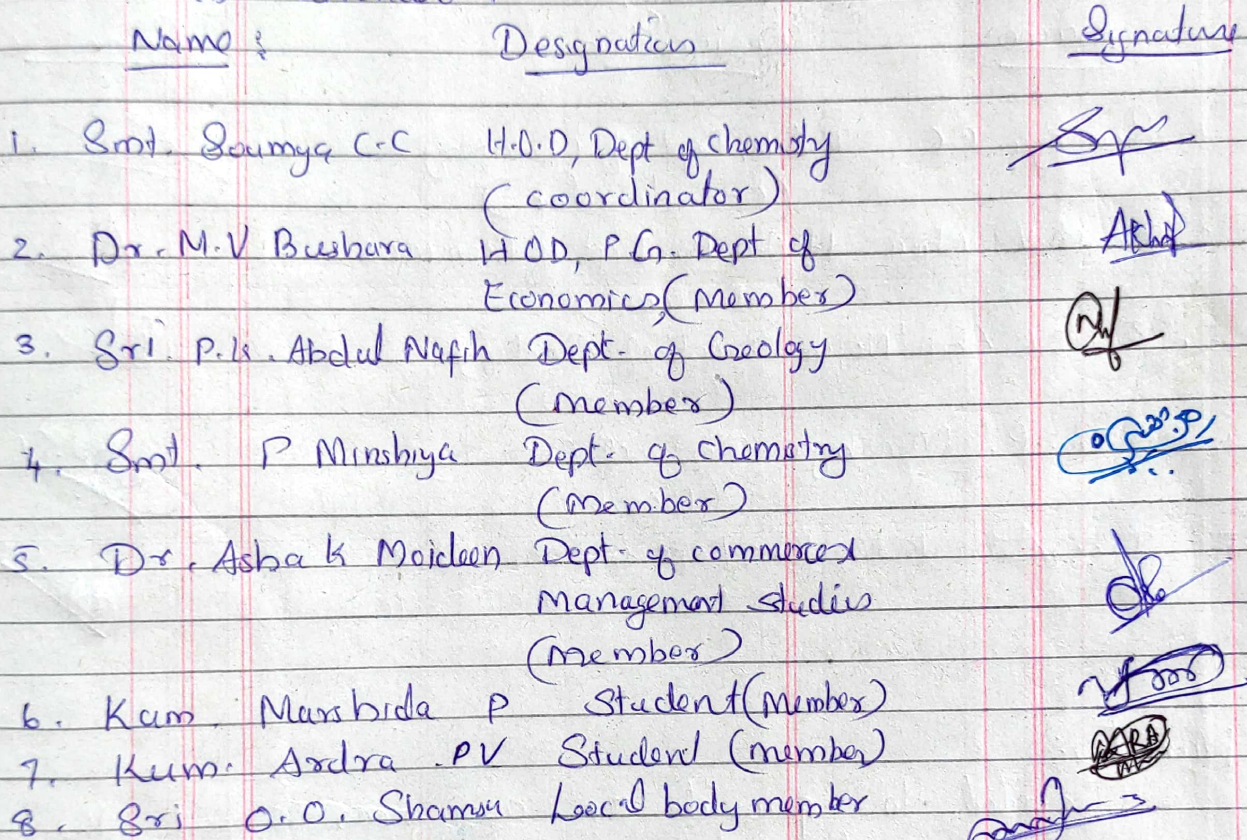 Name : Designation Signature
1. Smt. Soumya C.C H.O.D, Dept of Chemistry
(coordinator)
2. Dr. M.V Bushara HOD, P.G. Dept of
Economics, (Member)
3. Sri. P.K. Abdul Nafih Dept. of Geology
(Member)
4. Smt. P Minshiya Dept. of Chemistry
(Member)
5. Dr. Asha K Moideen Dept. of commerce &
Management studies
(Member)
6. Kum. Marshida P Student (Member)
7. Kum. Ardra .PV Student (member)
8. Sri O.O. Shamsu Local body member